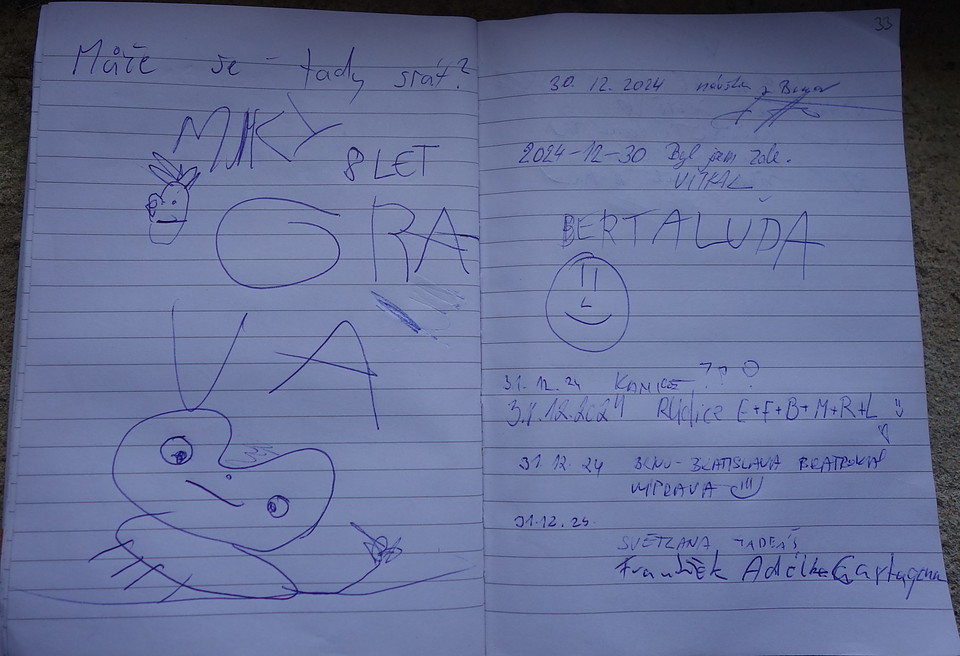 Může se tady srát?
MIKY
8 LET
GRA
VA
33
30. 12. 2024
2024-12-30 Byl jsem zde.
VÍTKAL
BERTALUĎA
31. 12. 24 KANICE ???
31.12.2024 E+F+B+M+R+L
31. 12. 24 BRNO - BRATISLAVA
VÝPRAVA
31.12.24.
SVĚTLANA TADEÁŠ
František Adélka Cartagena